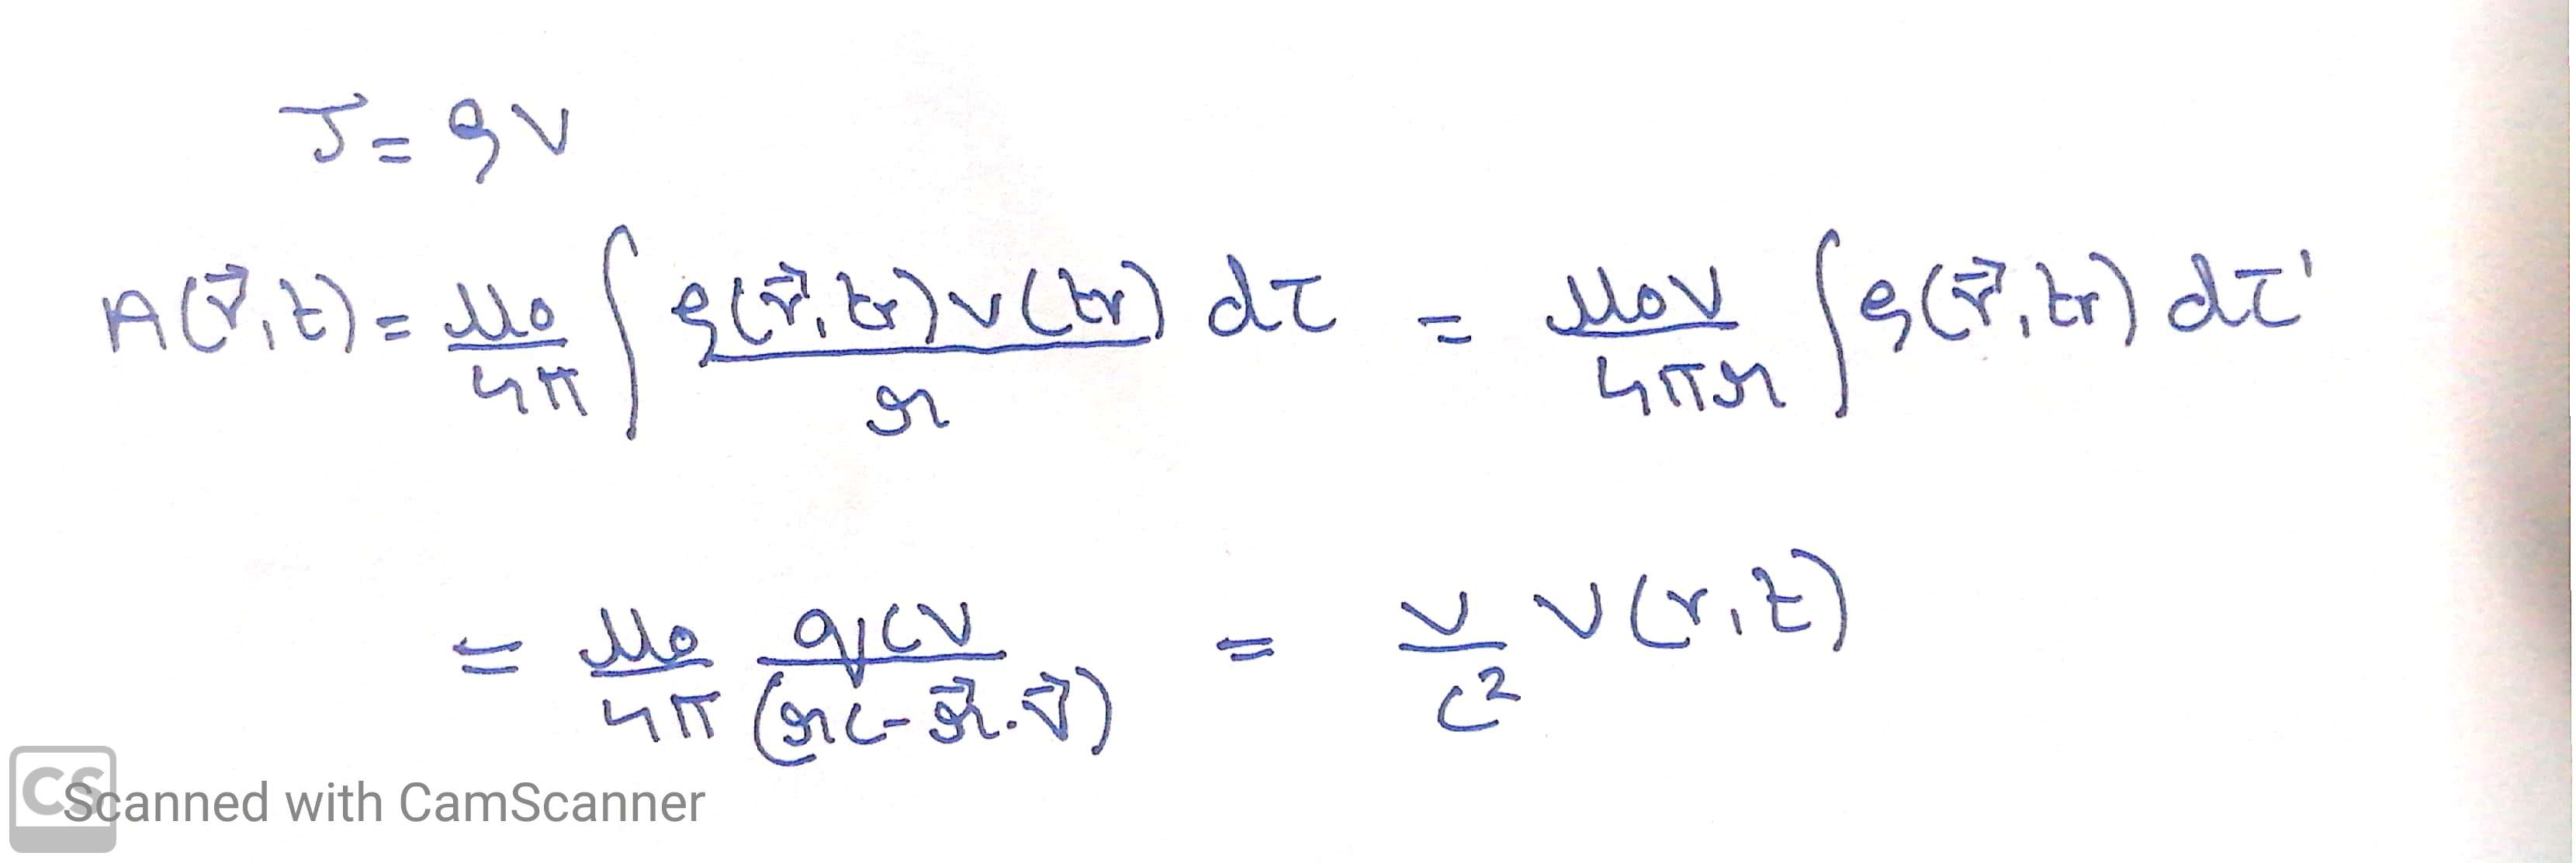 J = ρv
A(r⃗,t) = μ₀/4π ∫ ρ(r⃗,tr) v(tr)/𝓇 dτ = μ₀v/4π𝓇 ∫ρ(r⃗,tr) dτ'
= μ₀/4π qcv/(𝓇c-𝓇⃗.v⃗) = v/c² V(r,t)
CS Scanned with CamScanner